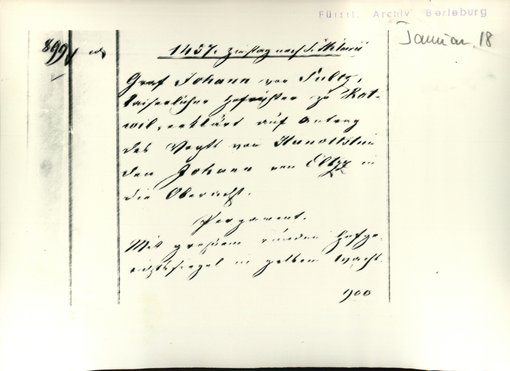 Fürstl. Archiv Berleburg
Januar 18
899
1457. Zinstag nach S. Hilarii
Graf Johann von Sultz,
kaiserlicher Hofrichter zu Rot-
wil, erklärt auf Antrag
des Vogts von Hunoltstein
den Johann von Eltz in
die Oberacht.
Pergament.
Mit großem runden Hofge-
richtssiegel in gelbem Wachs.
900